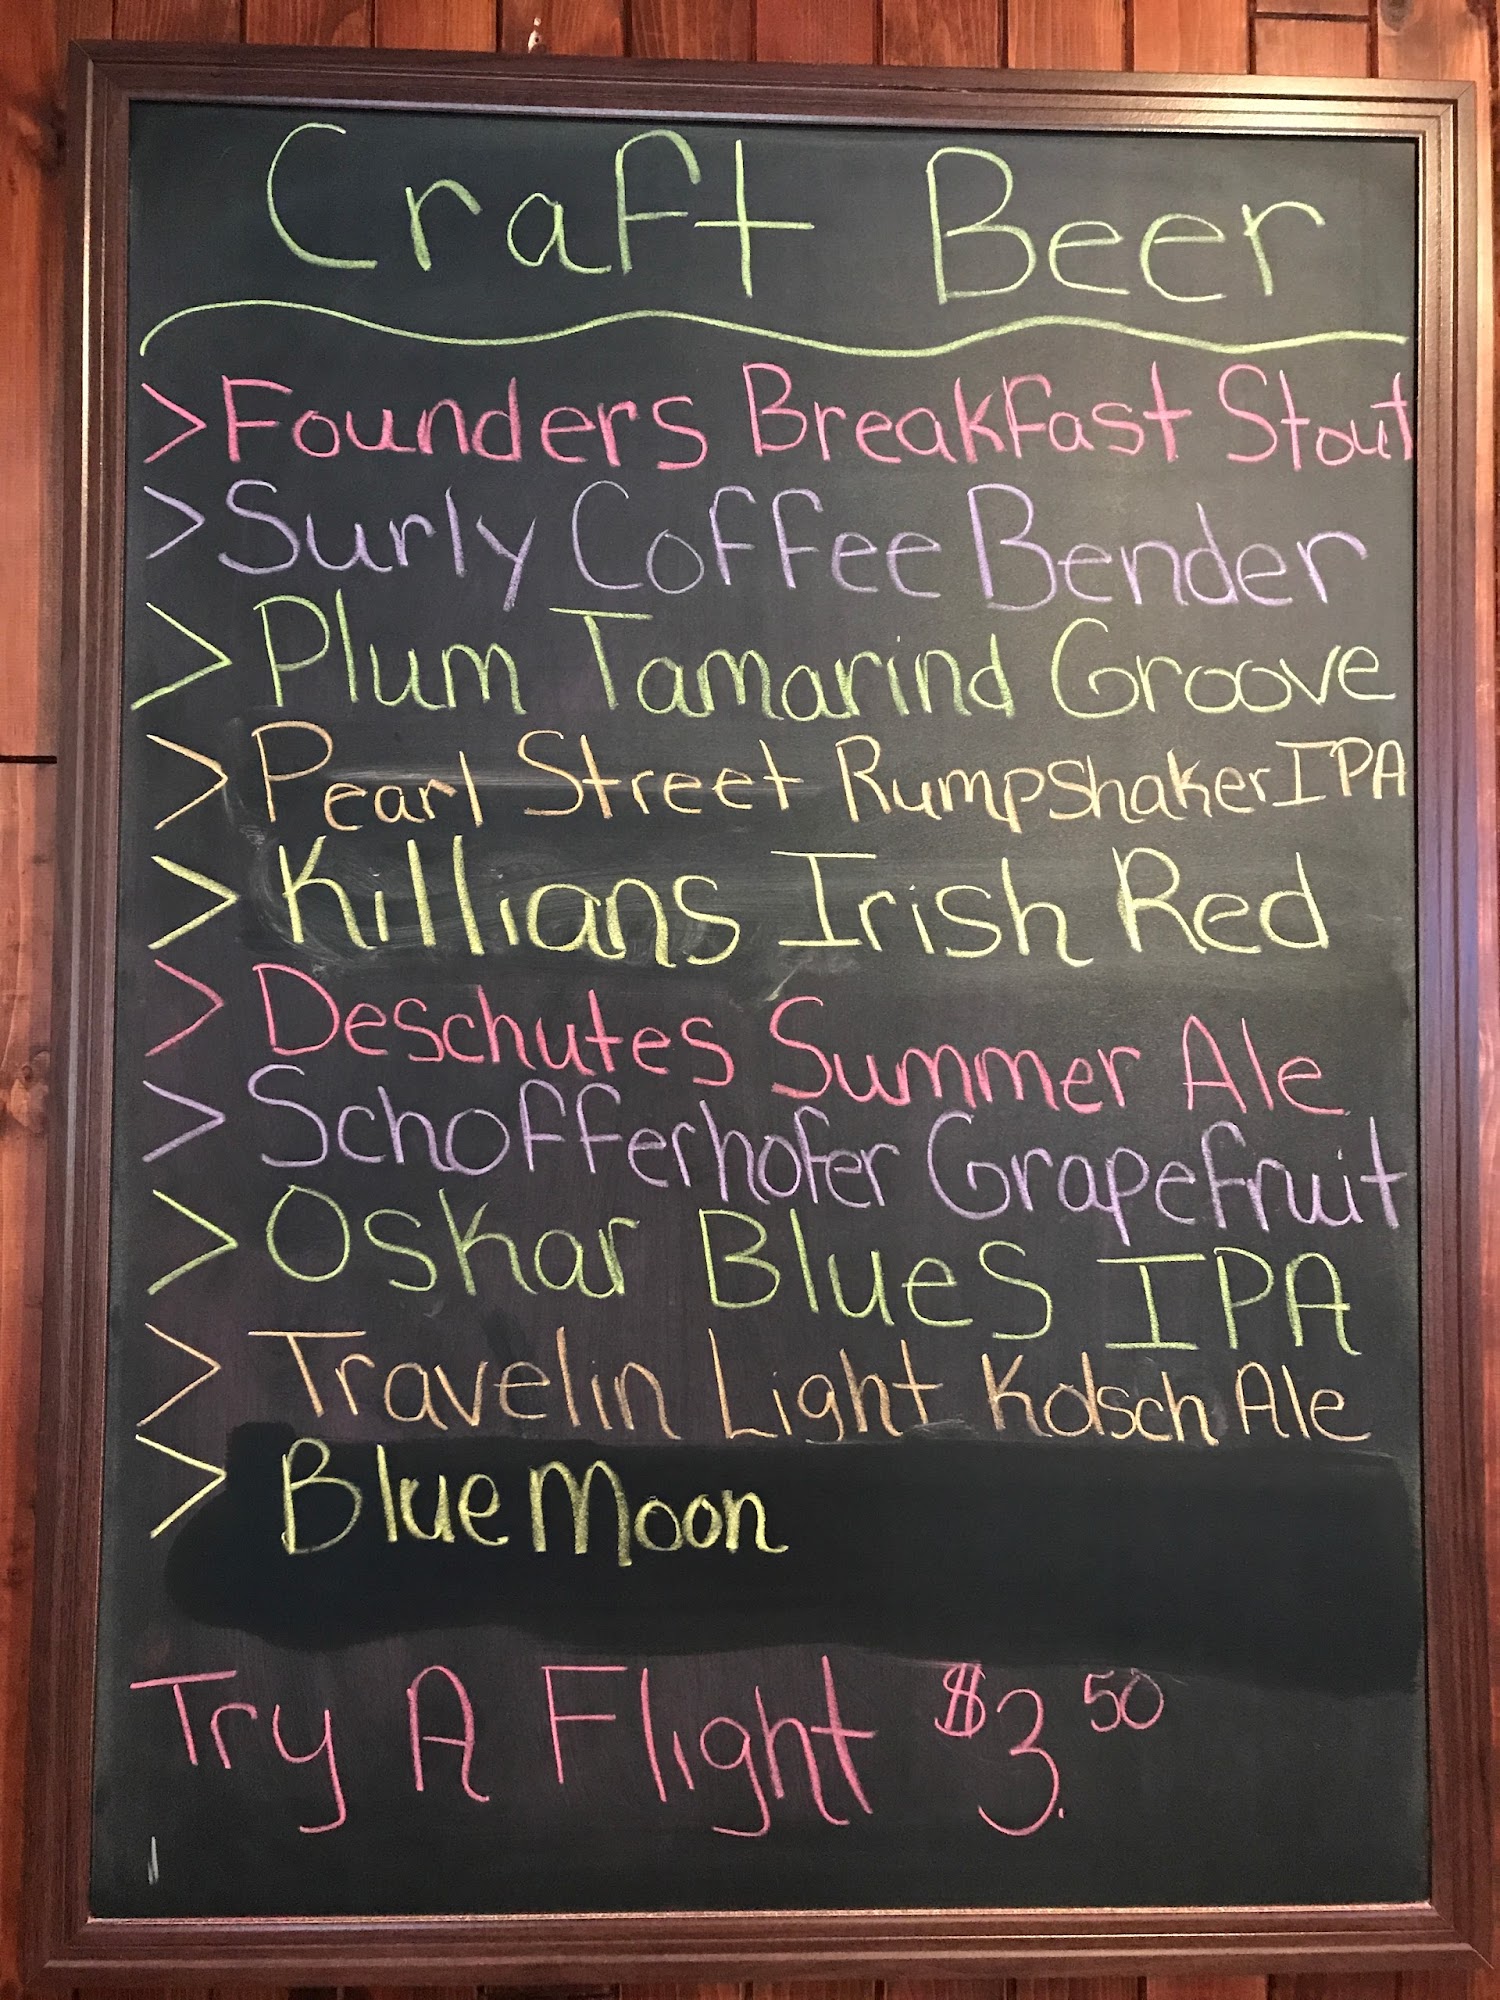 Craft Beer
> Founders Breakfast Stout
> Surly Coffee Bender
> Plum Tamarind Groove
> Pearl Street Rumpshaker IPA
> Killians Irish Red
> Deschutes Summer Ale
> Schofferhofer Grapefruit
> Oskar Blues IPA
> Travelin Light Kolsch Ale
> Blue Moon
Try A Flight $3.50